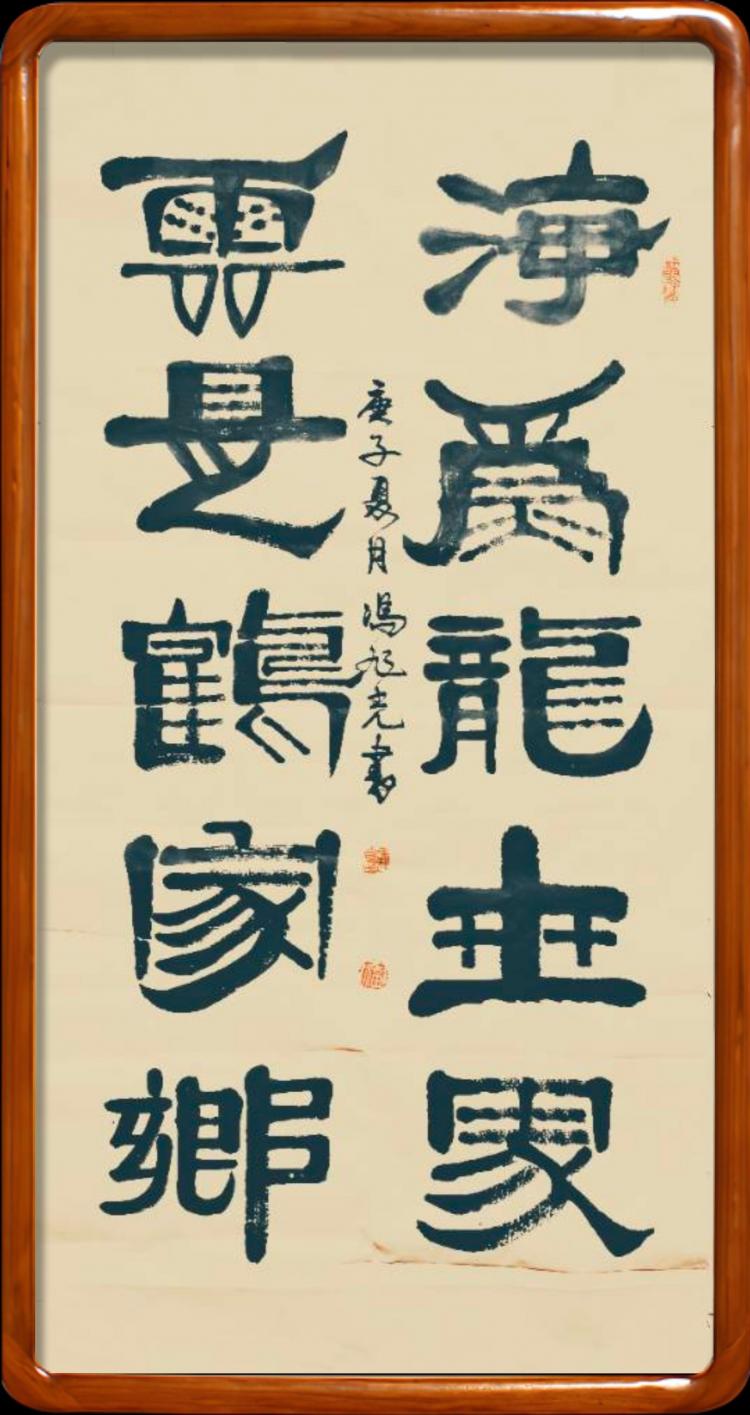 海爲龍世界
雲是鶴家鄉
庚子夏月馮旭光書